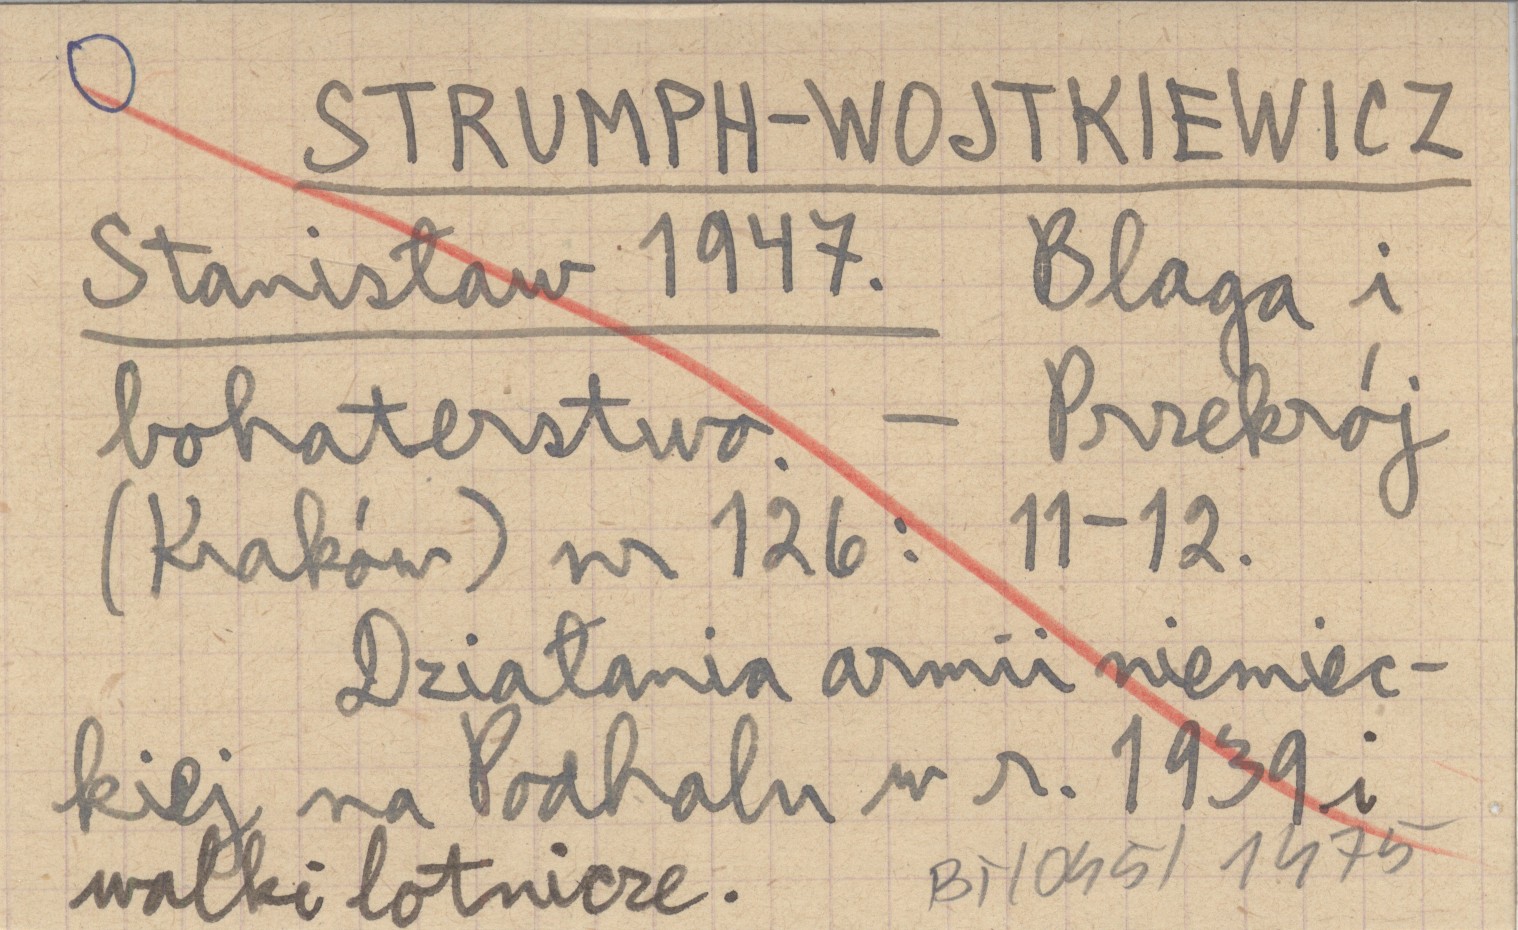 STRUMPH-WOJTKIEWICZ
Stanisław 1947. Blaga i
bohaterstwo. – Przekrój
(Kraków) nr 126: 11–12.
Działania armii niemiec-
kiej na Podhalu w r. 1939 i
walki lotnicze.
1475